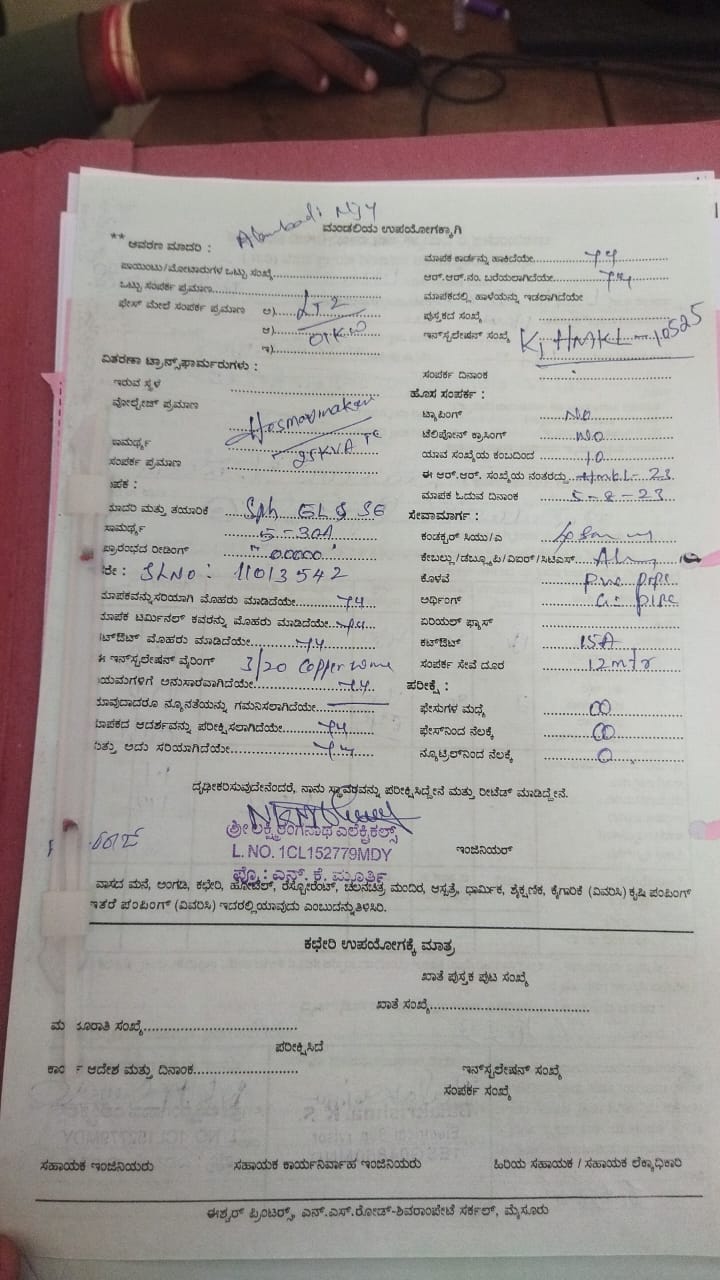 Alambadi NJY
ಮಂಡಲಿಯ ಉಪಯೋಗಕ್ಕಾಗಿ
** ಆವರಣ ಮಾದರಿ :
ಪಾಯಿಂಟು/ಮೋಟಾರುಗಳ ಒಟ್ಟು ಸಂಖ್ಯೆ
ಒಟ್ಟು ಸಂಪರ್ಕ ಪ್ರಮಾಣ
ಫೇಸ್ ಮೇಲೆ ಸಂಪರ್ಕ ಪ್ರಮಾಣ ಅ) LT2
ಆ)
ಇ)
ವಿತರಣಾ ಟ್ರಾನ್ಸ್‌ಫಾರ್ಮರುಗಳು :
ಇರುವ ಸ್ಥಳ
ವೋಲ್ಟೇಜ್ ಪ್ರಮಾಣ
ಸಾಮರ್ಥ್ಯ
ಸಂಪರ್ಕ ಪ್ರಮಾಣ
ಾಪಕ :
ಮಾದರಿ ಮತ್ತು ತಯಾರಿಕೆ Sph
ಸಾಮರ್ಥ್ಯ 5-30A
ಪ್ರಾರಂಭದ ರೀಡಿಂಗ್ 00000
SLNO: 11013542
ಮಾಪಕವನ್ನು ಸರಿಯಾಗಿ ಮೊಹರು ಮಾಡಿದೆಯೇ
ಮಾಪಕ ಟರ್ಮಿನಲ್ ಕವರನ್ನು ಮೊಹರು ಮಾಡಿದೆಯೇ
ಟ್‌ಔಟ್ ಮೊಹರು ಮಾಡಿದೆಯೇ
ಈ ಇನ್‌ಸ್ಟಲೇಷನ್ ವೈರಿಂಗ್ 3/20 Copper wire
ಯಮಗಳಿಗೆ ಅನುಸಾರವಾಗಿದೆಯೇ
ಯಾವುದಾದರೂ ನ್ಯೂನತೆಯನ್ನು ಗಮನಿಸಲಾಗಿದೆಯೇ
ಮಾಪಕದ ಆದರ್ಶವನ್ನು ಪರೀಕ್ಷಿಸಲಾಗಿದೆಯೇ
ಮತ್ತು ಅದು ಸರಿಯಾಗಿದೆಯೇ
ಮಾಪಕ ಕಾರ್ಡನ್ನು ಹಾಕಿದೆಯೇ
ಆರ್.ಆರ್.ನಂ. ಬರೆಯಲಾಗಿದೆಯೇ
ಮಾಪಕದಲ್ಲಿ ಹಾಳೆಯನ್ನು ಇಡಲಾಗಿದೆಯೇ
ಪುಸ್ತಕದ ಸಂಖ್ಯೆ
ಇನ್‌ಸ್ಟಲೇಷನ್ ಸಂಖ್ಯೆ KJHMKL-10525
ಸಂಪರ್ಕ ದಿನಾಂಕ
ಹೊಸ ಸಂಪರ್ಕ :
ಟ್ಯಾಪಿಂಗ್ NO
ಟೆಲಿಫೋನ್ ಕ್ರಾಸಿಂಗ್ NO
ಯಾವ ಸಂಖ್ಯೆಯ ಕಂಬದಿಂದ 10
ಈ ಆರ್.ಆರ್. ಸಂಖ್ಯೆಯ ನಂತರದ್ದು HMKL-23
ಮಾಪಕ ಓದುವ ದಿನಾಂಕ 5-8-23
ಸೇವಾಮಾರ್ಗ :
ಕಂಡಕ್ಟರ್ ಸಿಯು/ಎ
ಕೇಬಲ್ಲು/ಡಬ್ಲ್ಯೂಪಿ/ವಿಐರ್/ಸಿಟಿಎಸ್
ಕೊಳವೆ pvc pipe
ಅರ್ಥಿಂಗ್ G- pipe
ಏರಿಯಲ್ ಫ್ಯಾಸ್
ಕಟ್‌ಔಟ್ 15A
ಸಂಪರ್ಕ ಸೇವೆ ದೂರ 12mtr
ಪರೀಕ್ಷೆ :
ಫೇಸುಗಳ ಮಧ್ಯೆ 00
ಫೇಸ್‌ನಿಂದ ನೆಲಕ್ಕೆ 00
ನ್ಯೂಟ್ರಿಲ್‌ನಿಂದ ನೆಲಕ್ಕೆ 0
ದೃಢೀಕರಿಸುವುದೇನೆಂದರೆ, ನಾನು ಸ್ಥಾವರವನ್ನು ಪರೀಕ್ಷಿಸಿದ್ದೇನೆ ಮತ್ತು ರೀಟೆಡ್ ಮಾಡಿದ್ದೇನೆ.
ಶ್ರೀ ಲಕ್ಷ್ಮೀರಂಗನಾಥ ಎಲೆಕ್ಟ್ರಿಕಲ್ಸ್
L. NO. 1CL152779MDY
ಪ್ರೊ : ಎನ್. ಕೆ. ಮೂರ್ತಿ
ಇಂಜಿನಿಯರ್
ವಾಸದ ಮನೆ, ಅಂಗಡಿ, ಕಛೇರಿ, ಹೋಟೆಲ್, ರೆಸ್ಟೋರೆಂಟ್, ಚಲನಚಿತ್ರ ಮಂದಿರ, ಆಸ್ಪತ್ರೆ, ಧಾರ್ಮಿಕ, ಶೈಕ್ಷಣಿಕ, ಕೈಗಾರಿಕೆ (ವಿವರಿಸಿ) ಕೃಷಿ ಪಂಪಿಂಗ್
ಇತರೆ ಪಂಪಿಂಗ್ (ವಿವರಿಸಿ) ಇದರಲ್ಲಿ ಯಾವುದು ಎಂಬುದನ್ನು ತಿಳಿಸಿರಿ.
ಕಛೇರಿ ಉಪಯೋಗಕ್ಕೆ ಮಾತ್ರ
ಖಾತೆ ಪುಸ್ತಕ ಪುಟ ಸಂಖ್ಯೆ
ಖಾತೆ ಸಂಖ್ಯೆ
ಪರೀಕ್ಷಿಸಿದೆ
ಆದೇಶ ಮತ್ತು ದಿನಾಂಕ
ಇನ್‌ಸ್ಟಲೇಷನ್ ಸಂಖ್ಯೆ
ಸಂಪರ್ಕ ಸಂಖ್ಯೆ
ಸಹಾಯಕ ಇಂಜಿನಿಯರು ಸಹಾಯಕ ಕಾರ್ಯನಿರ್ವಾಹ ಇಂಜಿನಿಯರು ಹಿರಿಯ ಸಹಾಯಕ / ಸಹಾಯಕ ಲೆಕ್ಕಾಧಿಕಾರಿ
ಈಶ್ವರ್ ಪ್ರಿಂಟರ್ಸ್, ಎನ್.ಎಸ್.ರೋಡ್-ಶಿವರಾಂಪೇಟೆ ಸರ್ಕಲ್, ಮೈಸೂರು